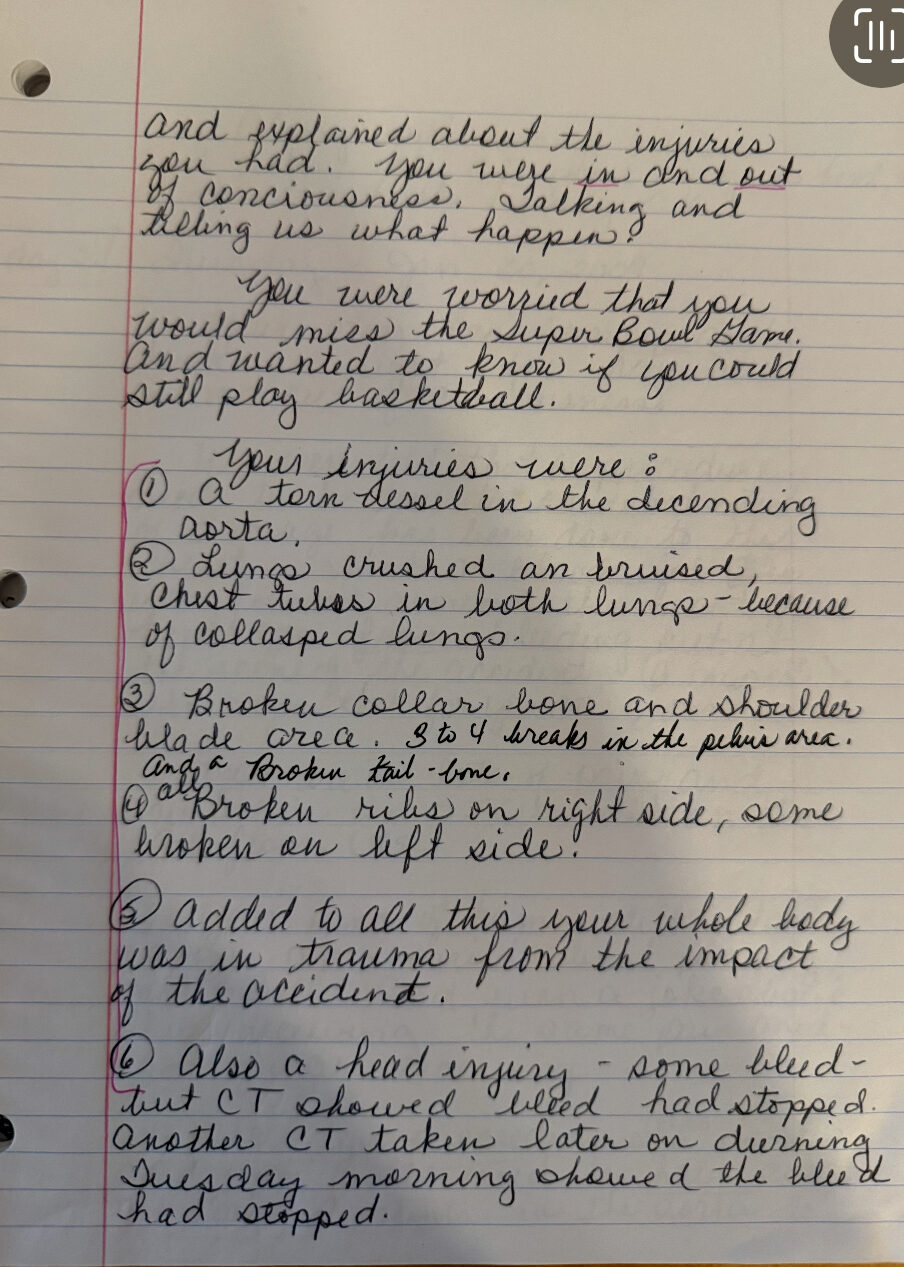 and explained about the injuries
you had. You were in and out
of conciousness. Talking and
telling us what happen.
You were worried that you
would miss the Super Bowl Game.
And wanted to know if you could
still play basketball.
Your injuries were:
① A torn vessel in the decending
aorta.
② Lungs crushed an bruised,
Chest tubes in both lungs - because
of collasped lungs.
③ Broken collar bone and shoulder
blade area. 3 to 4 breaks in the pelvis area.
And a Broken tail-bone.
④ all Broken ribs on right side, some
broken on left side.
⑤ Added to all this your whole body
was in trauma from the impact
of the accident.
⑥ Also a head injury - some bleed -
but CT showed bleed had stopped.
Another CT taken later on durning
Tuesday morning showed the bleed
had stopped.